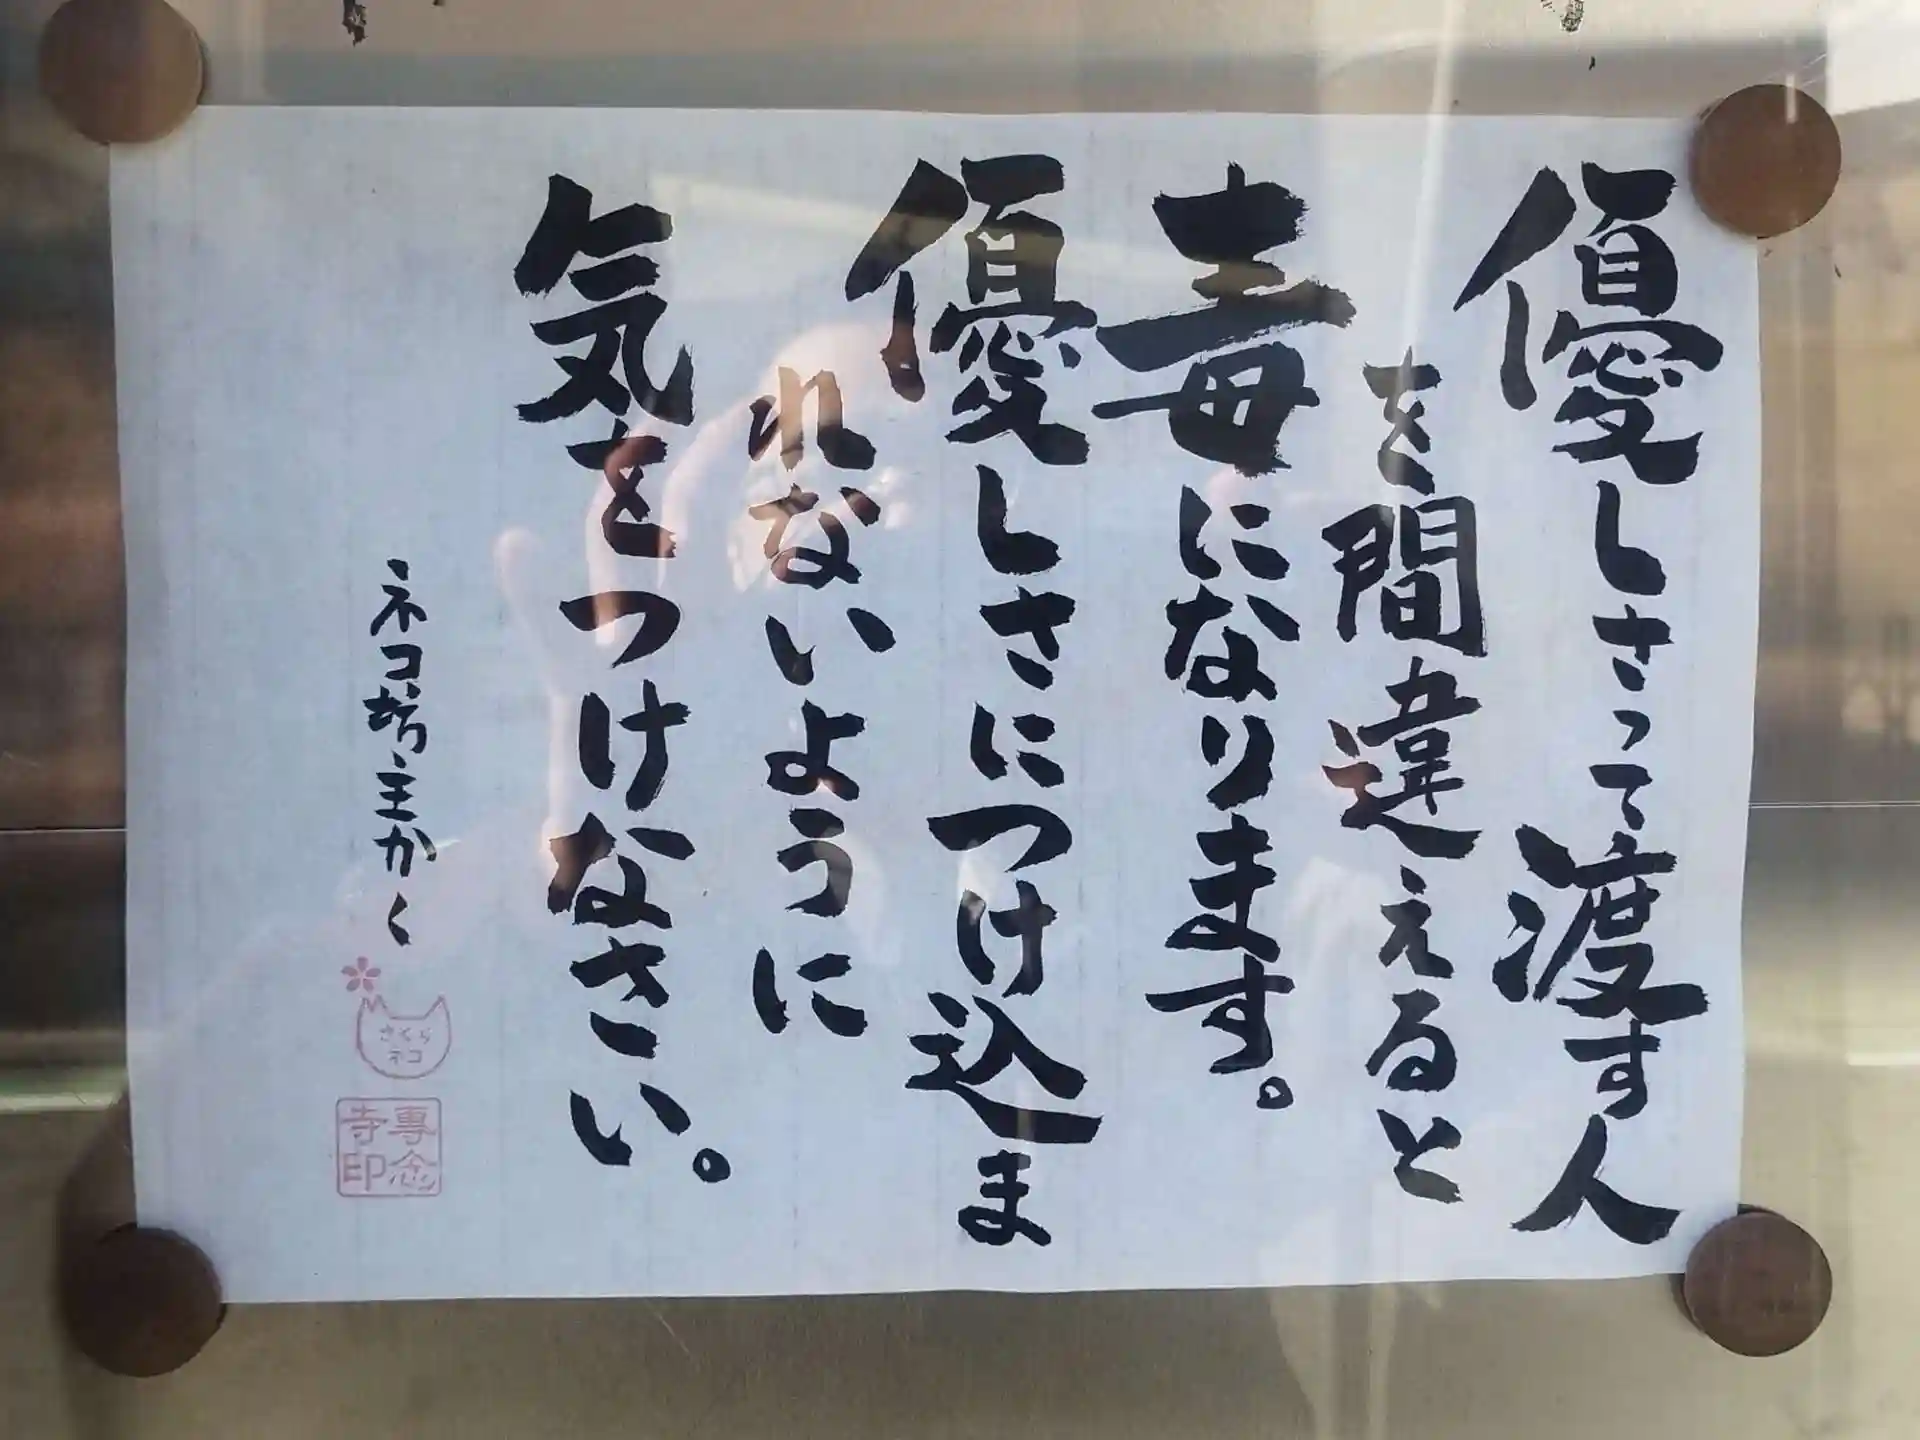 優しさって渡す人
を間違えると
毒になります。
優しさにつけ込ま
れないように
気をつけなさい。
ネコ坊主かく
さくら
ネコ
專念
寺印